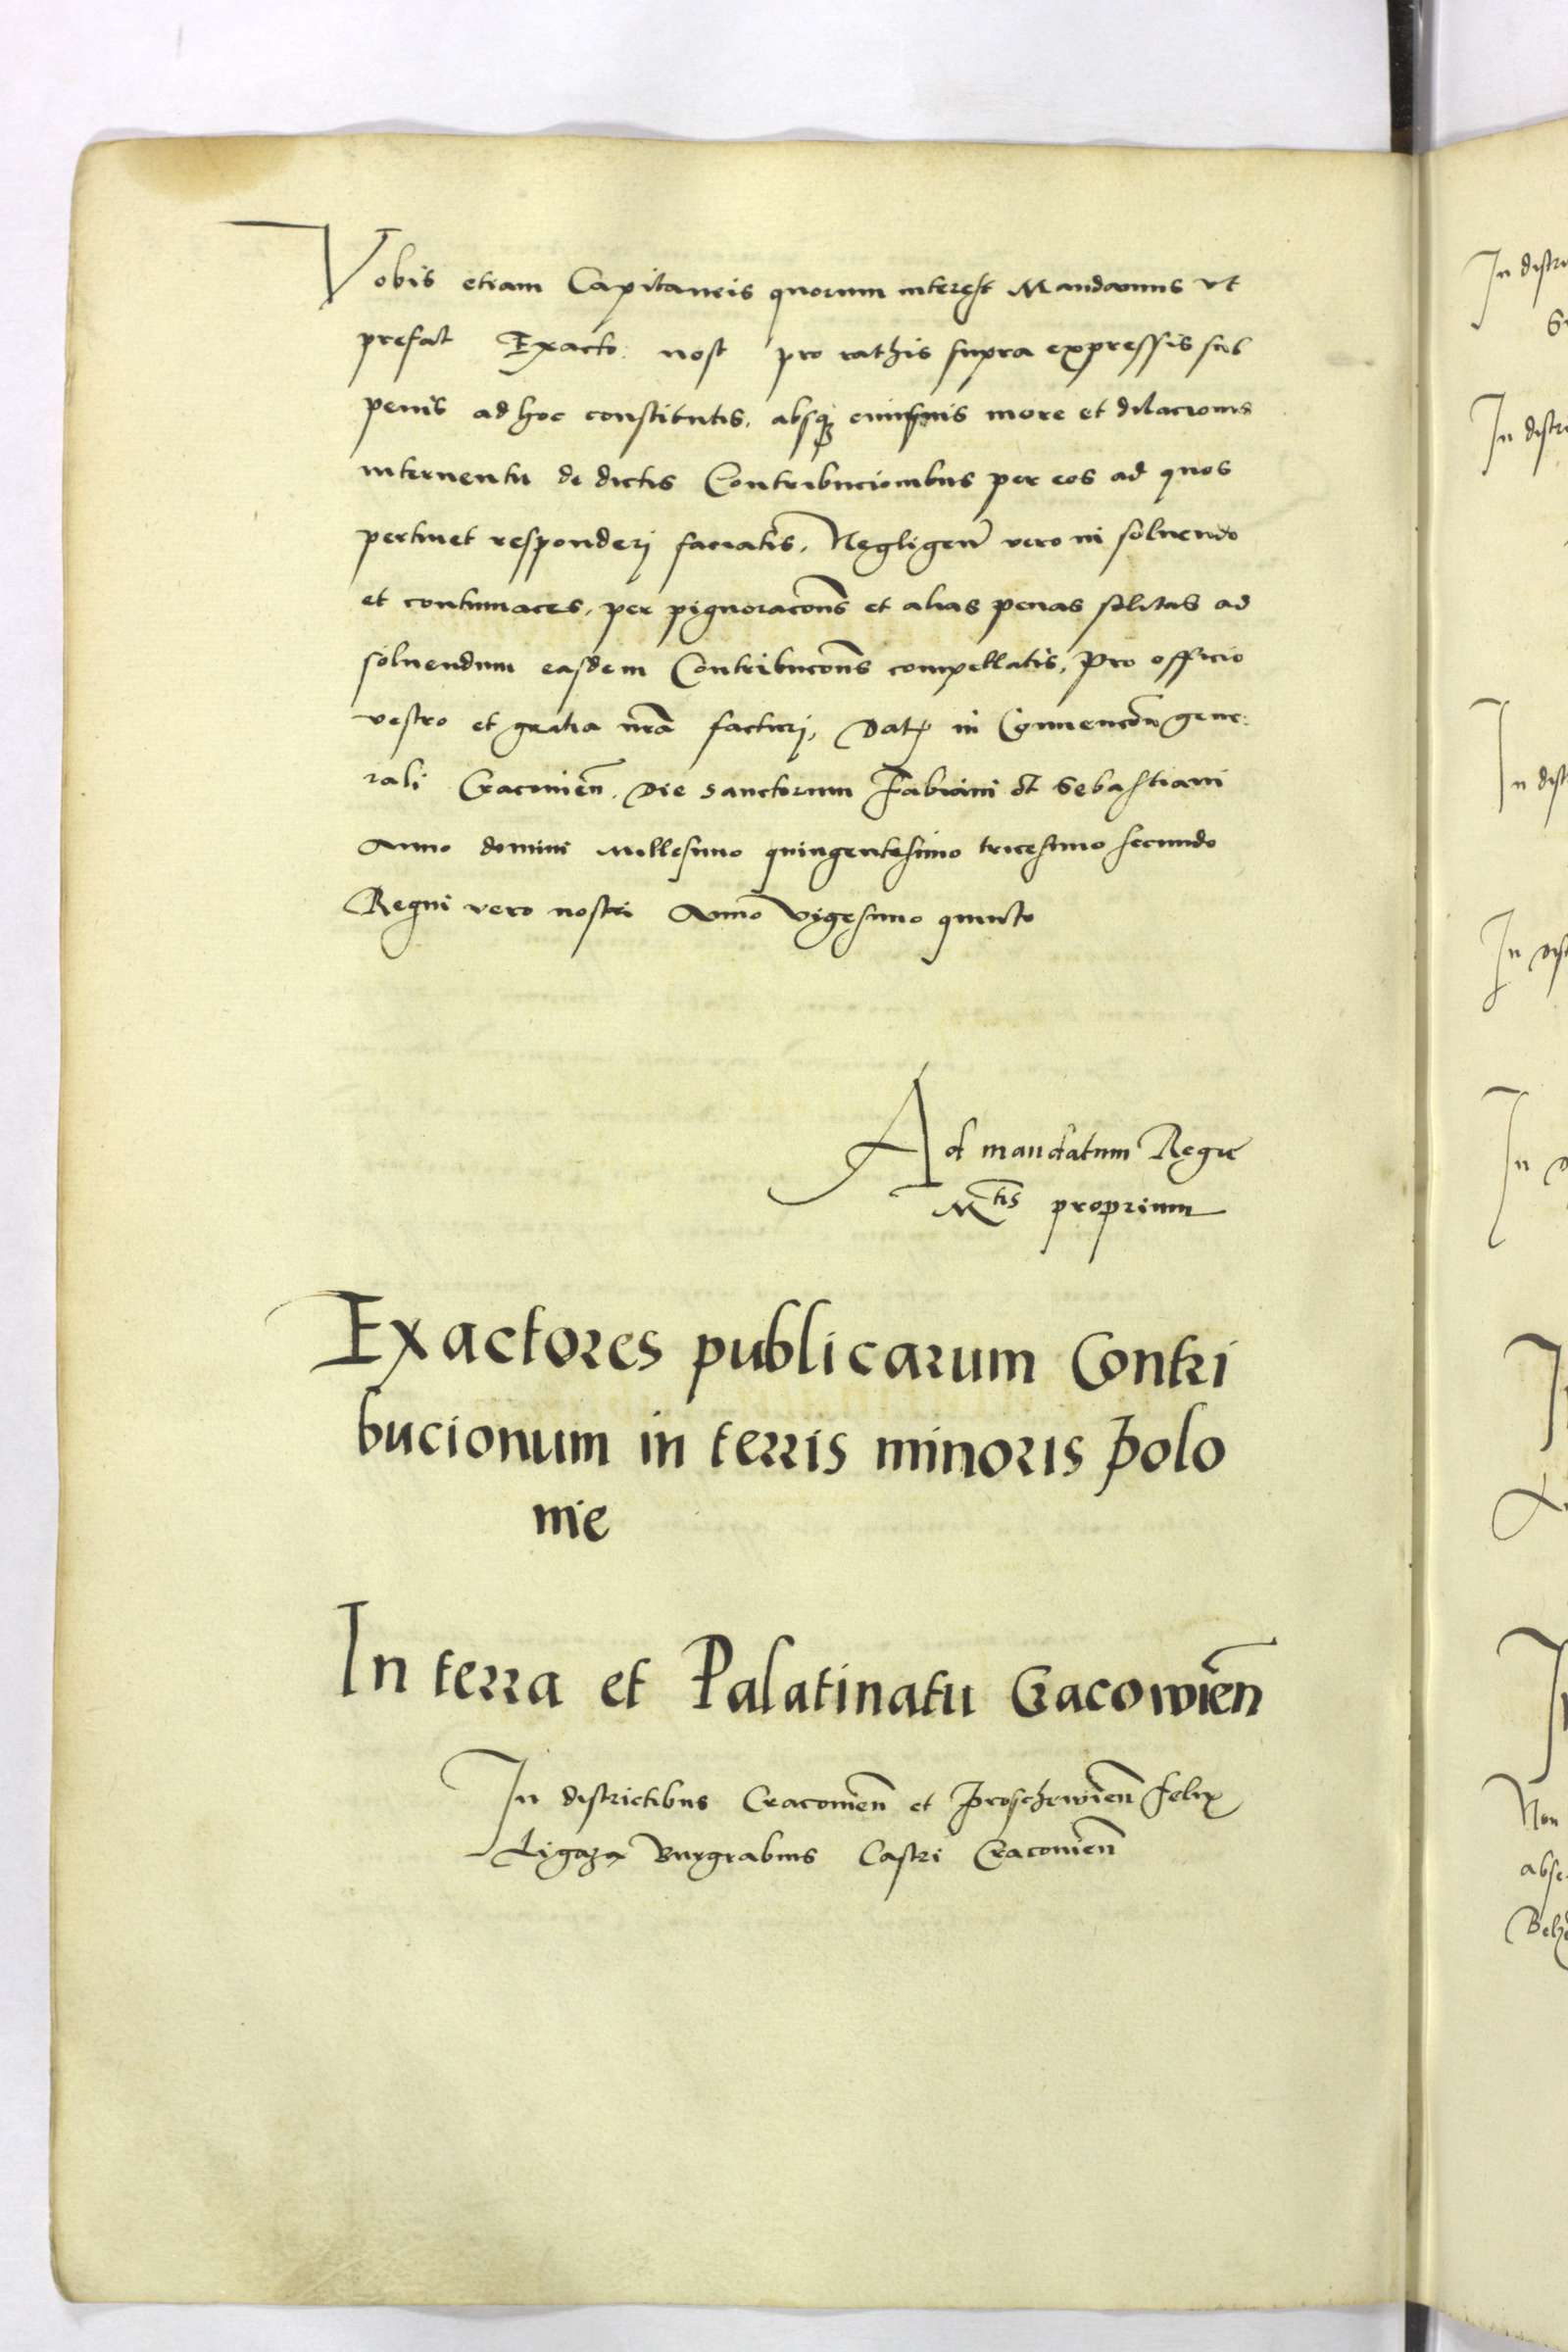 Vobis etiam Capitaneis quorum interest Mandamus vt
prefat Exacto: nost pro rathis supra expressis sub
penis ad hoc constitutis, absq; more et dilacionis
interuentu de dictis Contribucionibus per eos ad quos
pertinet responderj faciatis, Negligen̄ vero in soluendo
et contumaces, per pignoracōns et alias penas solitas ad
soluendum easdem Contribucōns compellatis, Pro officio
vestro et gratia nr̄a facturj, Dat in Conuencōn gene:
rali Cracouien̄. Die sanctorum Fabiani et Sebastiani
Anno domini Millesimo quingentesimo tricesimo secundo
Regni vero nostri Anno vigesimo quinto
Ad mandatum Regie
Mtis proprium
Exactores publicarum Contri
bucionum in terris minoris Polo
nie
In terra et Palatinatu Cracowien̄
In districtibus Cracouien̄ et Proschowien̄ Felix
Ligaza Burgrabius Castri Cracouien̄
In distri
In distri
In dist
In dis
In
Non
abse
Belz